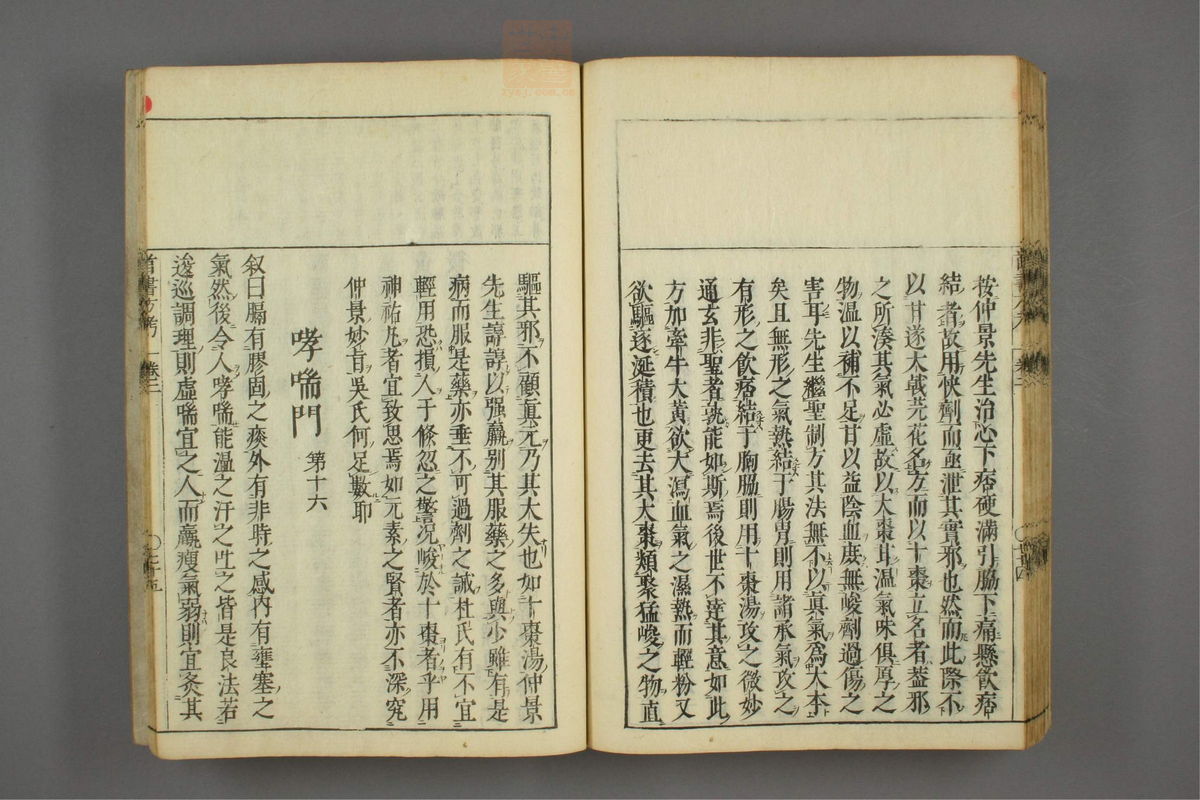 按仲景先生治心下痞硬滿引脇下痛懸飮痞
結者故用快劑而亟泄其實邪也然而此際不
以甘遂大戟芫花名方而以十棗立名者蓋邪
之所湊其氣必虛故以大棗甘温氣味俱厚之
物温以補不足甘以益陰血庶無峻劑過傷之
害耳先生繼聖制方其法無不以眞氣爲大本
矣且無形之氣熱結于腸胃則用諸承氣攻之
有形之飮痞結于胸脇則用十棗湯攻之微妙
通玄非聖者孰能如斯焉後世不達其意如此
方加牽牛大黃欲大瀉血氣之濕熱而輕粉又
欲驅逐涎積也更去其大棗類聚猛峻之物直
驅其邪不顧眞元乃其大失也如十棗湯仲景
先生諄諄以强羸別其服藥之多與少雖有是
病而服是藥亦垂不可過劑之誡杜氏有不宜
輕用恐損人于倐忽之警況峻於十棗者乎用
神祐凡者宜致思焉如元素之賢者亦不深究
仲景妙旨吳氏何足數耶
哮喘門 第十六
叙曰膈有膠固之痰外有非時之感内有壅塞之
氣然後令人哮喘能溫之汗之吐之皆是良法若
逡巡調理則虛喘宜之人而羸瘦氣弱則宜灸其